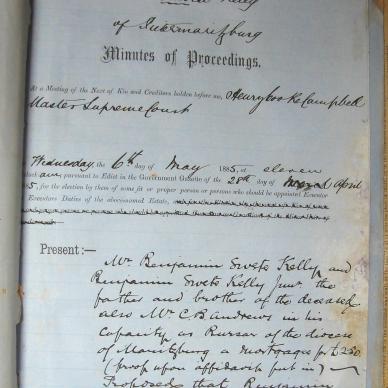 Kelly
of Pietermaritzburg
Minutes of Proceedings.
At a Meeting of the Next of Kin and Creditors holden before me, Henry Cooke Campbell
Master Supreme Court
Wednesday, the 6th day of May 1885, at eleven
o'clock am, pursuant to Edict in the Government Gazette of the 28th day of April
1885, for the election by them of some fit or proper person or persons who should be appointed Executor
Executors Dative of the abovenamed Estate,
Present:—
Mr Benjamin Swete Kelly and
Benjamin Swete Kelly Junr. the
father and brother of the deceased
also Mr C B Andrews in his
Capacity as Bursar of the diocese
of Maritzburg a mortgagee for £250
(proof upon affidavit put in) —
Proposed that Benjamin